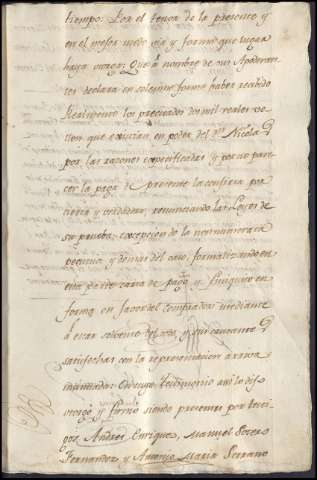 tiempo: Por el tenor de la presente y
en el mejor modo via y forma que lugar
haya otorga: Que á nombre de sus Apoderan
tes declara en solemne forma haber recibido
Realmente los precitados dos mil reales ve
llon que existian, en poder del Nicolas
por las razones especificadas y por no pare
cer la paga de presente la confiesa por
cierta y verdadera, renunciando las Leyes de
su prueba, excepcion de la non numerata
pecunia, y demas del caso, formalizando en
esta parte carta de pago y finiquito en
forma en favor del comprador mediante
á estar solvente del todo, y sus causantes
satisfechas con la representacion á rriva
insinuada: En cuyo testimonio asi lo dijo
otorgó y firmó siendo presentes por testi
gos, Andres Enriquez, Manuel Perez
Fernandez y Antonio Maria Serrano